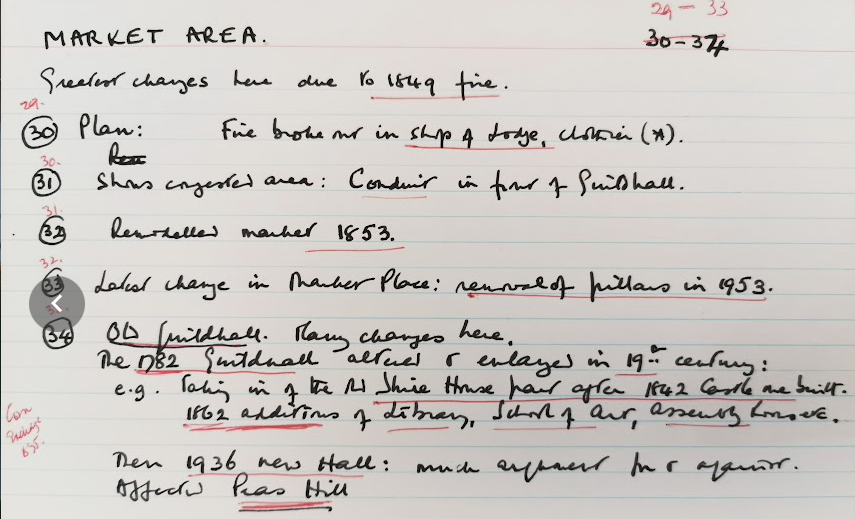 29 – 33
MARKET AREA.
30-34
Greatest changes here due to 1849 fire.
29.
30 Plan: Fire broke out in shop of Lodge, clothier (*).
30.
31 Shows congested area: Conduit in front of Guildhall.
31.
32 Remodelled market 1853.
32.
33 Latest change in Market Place: removal of pillars in 1953.
34 Old Guildhall. Many changes here.
The 1782 Guildhall altered & enlarged in 19th century:
e.g. Taking in of the old Shire House part after 1842 Castle one built.
1862 additions of Library, School of Art, Assembly
Corn
Then 1936 new Hall: much argument for & against.
Affected Peas Hill